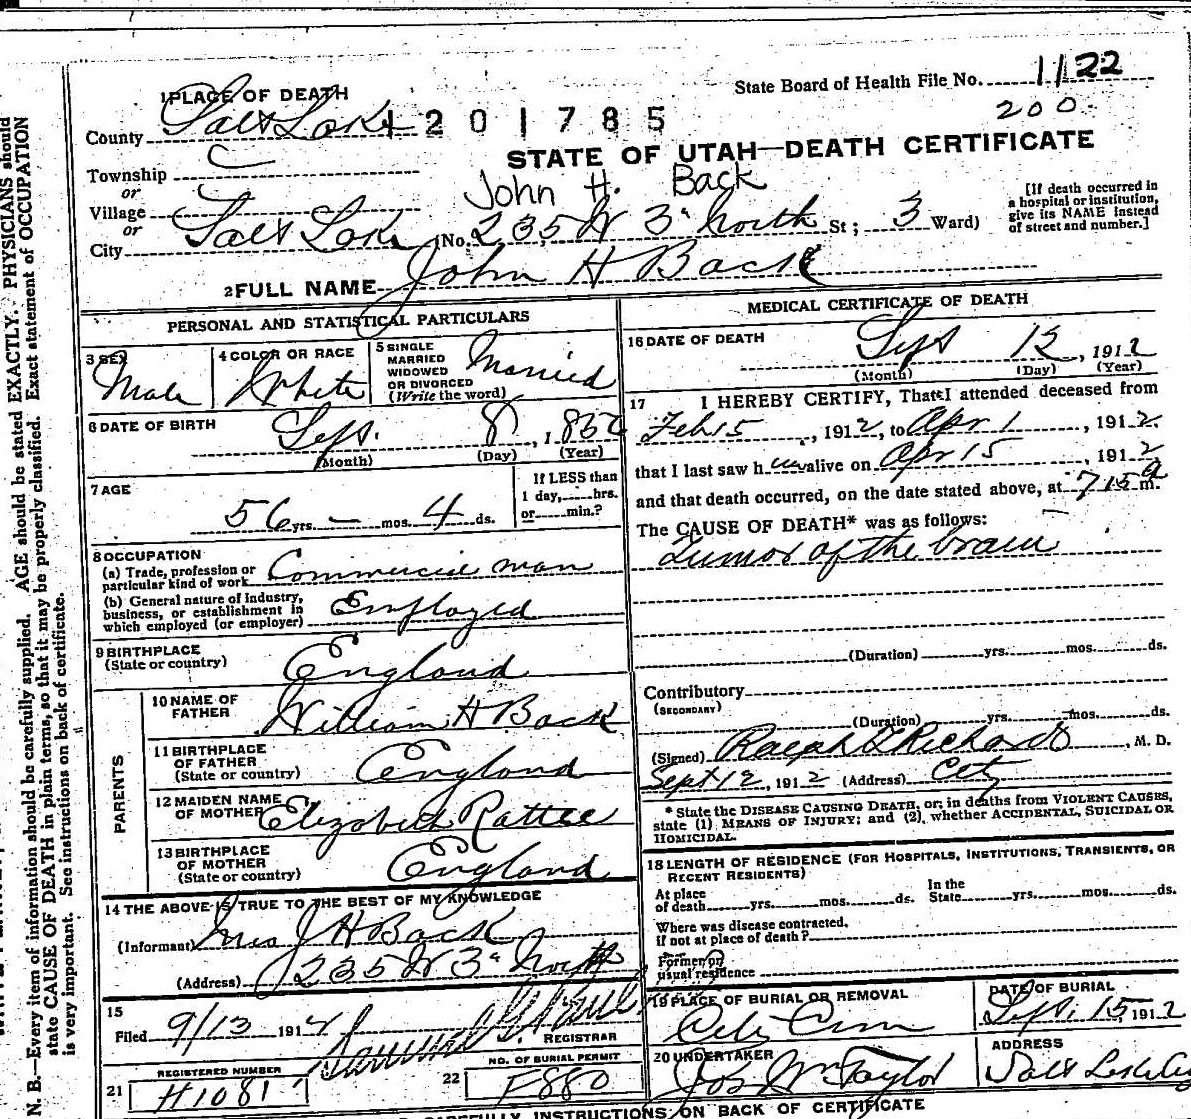 State Board of Health File No. 1122
200
1 PLACE OF DEATH
County Salt Lake 1201785
STATE OF UTAH—DEATH CERTIFICATE
Township
or
John H. Back
Village
or
City Salt Lake (No. 235 W 3" North St; 3 Ward)
[If death occurred in
a hospital or institution,
give its NAME instead
of street and number.]
2 FULL NAME John H Back
PERSONAL AND STATISTICAL PARTICULARS
3 SEX
Male
4 COLOR OR RACE
White
5 SINGLE
MARRIED
WIDOWED
OR DIVORCED
(Write the word)
Married
6 DATE OF BIRTH
Sept. 8, 1856
(Month) (Day) (Year)
7 AGE
56 yrs. — mos. 4 ds.
If LESS than
1 day, hrs.
or min.?
8 OCCUPATION
(a) Trade, profession or
particular kind of work
Commercial man
(b) General nature of industry,
business, or establishment in
which employed (or employer)
Employed
9 BIRTHPLACE
(State or country)
England
PARENTS
10 NAME OF
FATHER
William H Back
11 BIRTHPLACE
OF FATHER
(State or country)
England
12 MAIDEN NAME
OF MOTHER
Elizabeth Rattee
13 BIRTHPLACE
OF MOTHER
(State or country)
England
14 THE ABOVE IS TRUE TO THE BEST OF MY KNOWLEDGE
(Informant) Mrs J H Back
(Address) 235 W 3" North
15
Filed 9/13 1912
REGISTRAR
REGISTERED NUMBER
21 H1081
NO. OF BURIAL PERMIT
22 F880
MEDICAL CERTIFICATE OF DEATH
16 DATE OF DEATH
Sept 12, 1912
(Month) (Day) (Year)
17 I HEREBY CERTIFY, That I attended deceased from
Feb 15, 1912, to Apr 1, 1912.
that I last saw him alive on Apr 15, 1912
and that death occurred, on the date stated above, at 715 a m.
The CAUSE OF DEATH* was as follows:
Tumor of the brain
(Duration) yrs. mos. ds.
Contributory
(SECONDARY)
(Duration) yrs. mos. ds.
(Signed) Ralph T Richards, M. D.
Sept 12, 1912 (Address) City
* State the DISEASE CAUSING DEATH, or, in deaths from VIOLENT CAUSES,
state (1) MEANS OF INJURY; and (2), whether ACCIDENTAL, SUICIDAL OR
HOMICIDAL.
18 LENGTH OF RESIDENCE (FOR HOSPITALS, INSTITUTIONS, TRANSIENTS, OR
RECENT RESIDENTS)
At place
of death yrs. mos. ds.
In the
State yrs. mos. ds.
Where was disease contracted,
if not at place of death?
Former or
usual residence
19 PLACE OF BURIAL OR REMOVAL
City Cem
DATE OF BURIAL
Sept. 15, 1912
20 UNDERTAKER
Jos Wm Taylor
ADDRESS
Salt Lake City
CAREFULLY INSTRUCTIONS ON BACK OF CERTIFICATE
N. B.—Every item of information should be carefully supplied. AGE should be stated EXACTLY. PHYSICIANS should
state CAUSE OF DEATH in plain terms, so that it may be properly classified. Exact statement of OCCUPATION
is very important. See instructions on back of certificate.